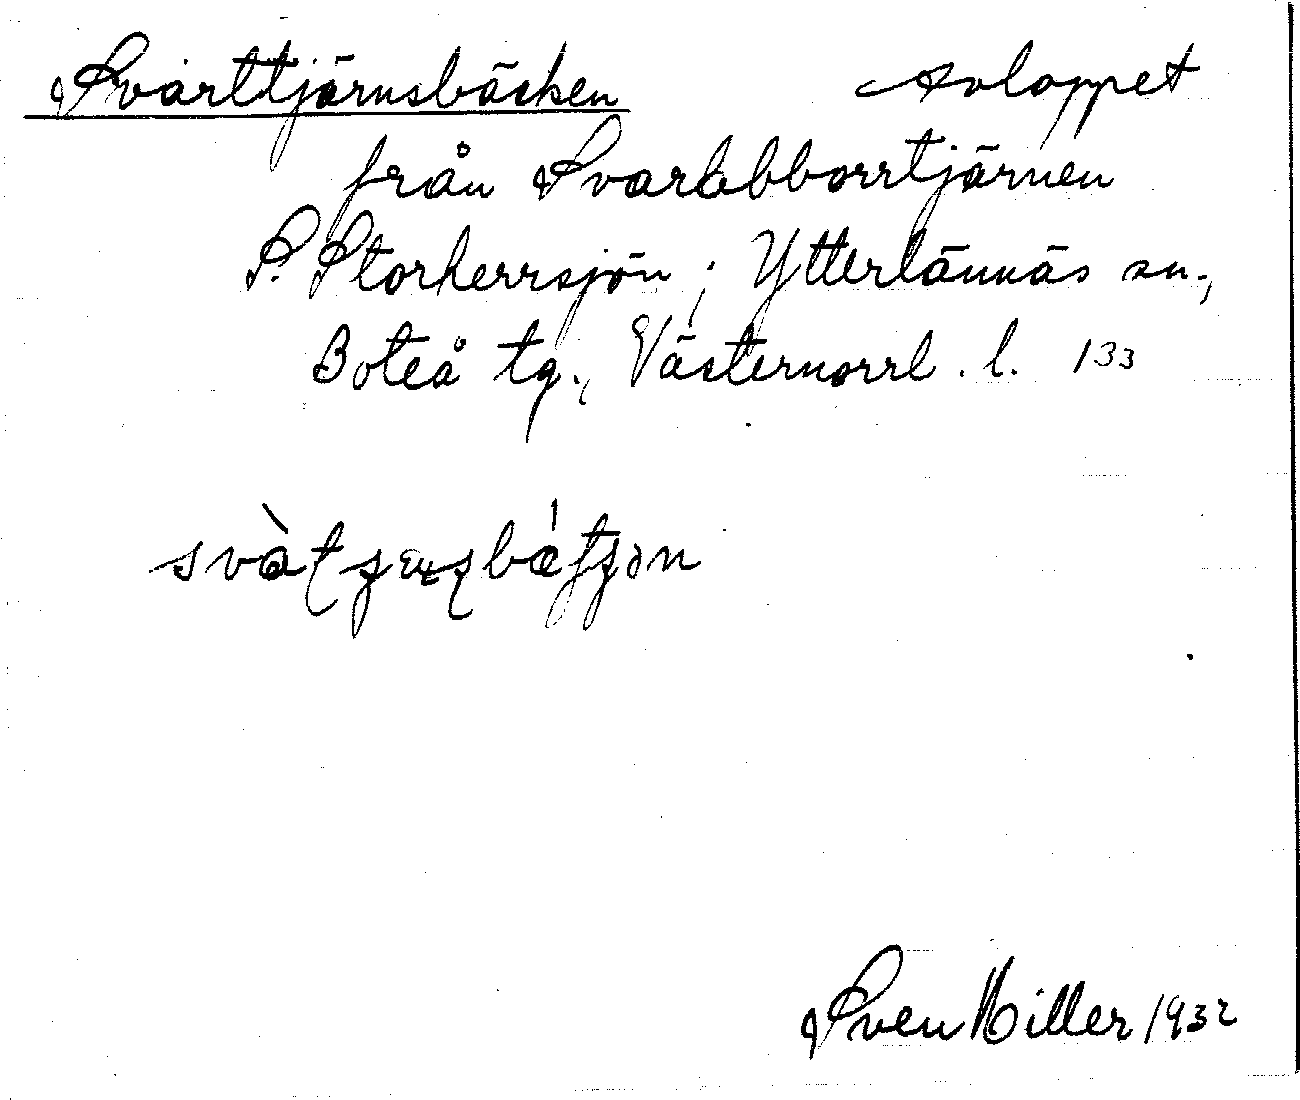 Svarttjärnsbäcken Avloppet
från Svartabborrtjärnen
S. Storherrsjön; Ytterlännäs sn.,
Boteå tg., Västernorrl. l. 133
Sven Miller 1932